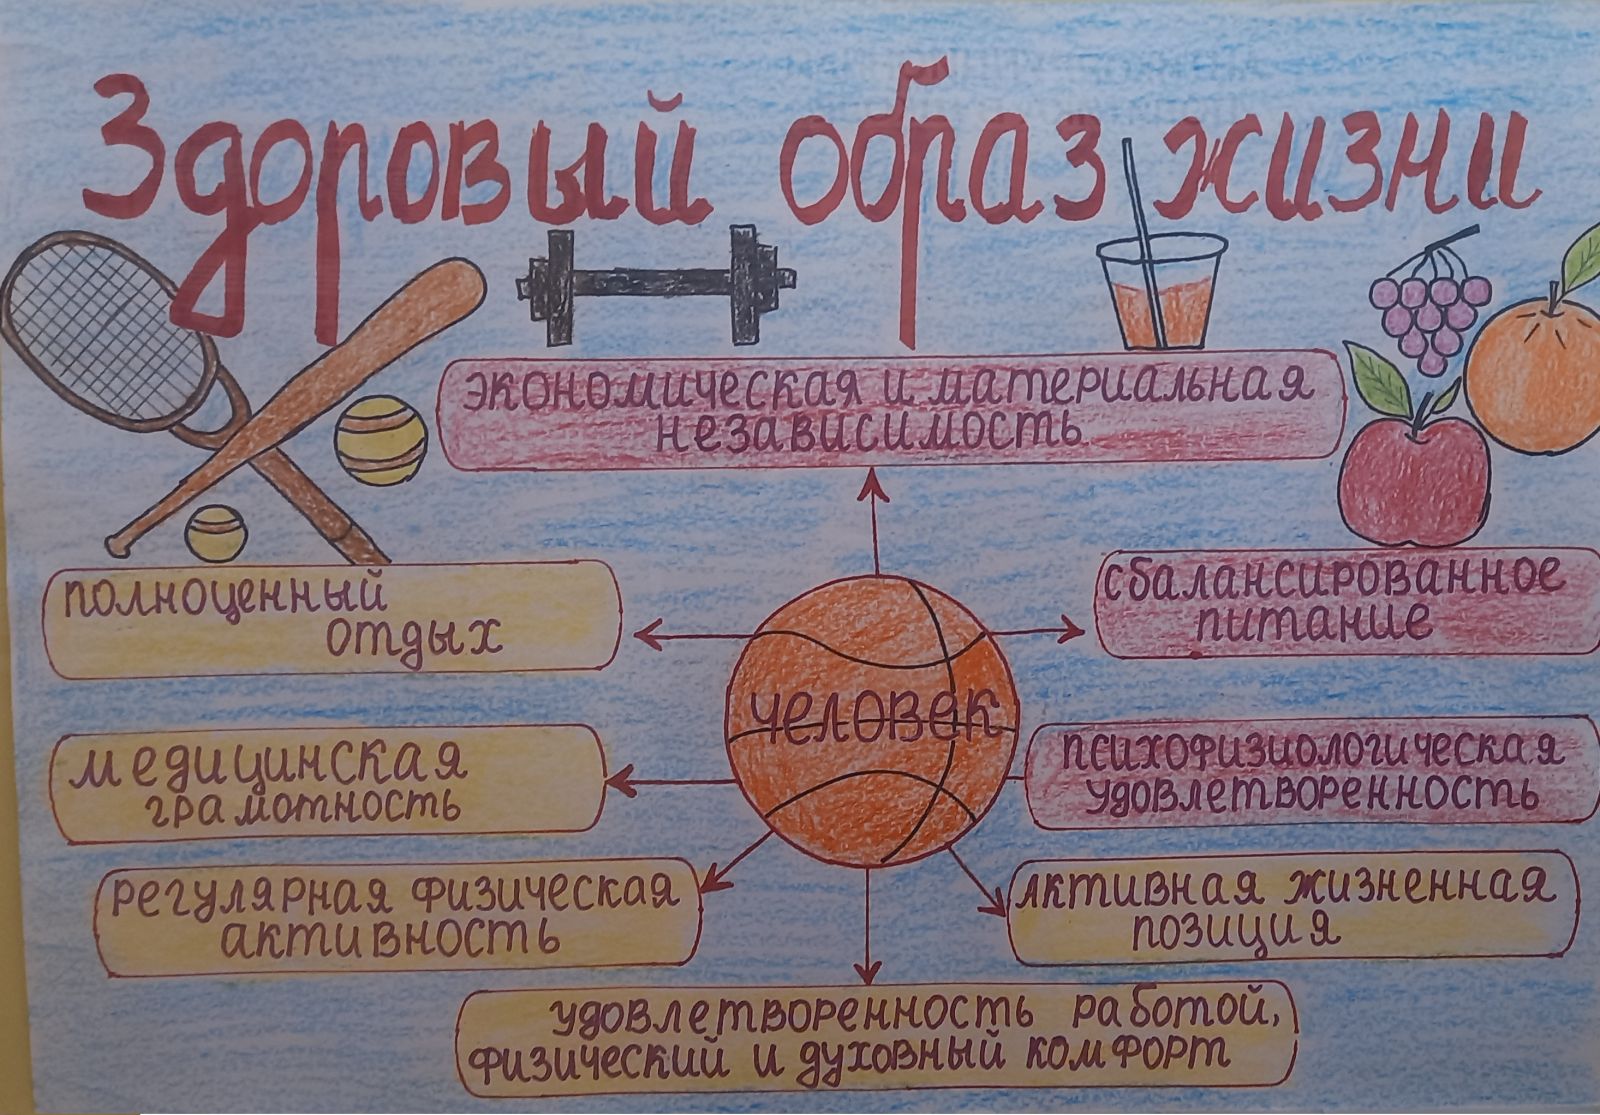 Здоровый образ жизни
экономическая и материальная
независимость
полноценный
отдых
сбалансированное
питание
человек
медицинская
грамотность
психофизиологическая
удовлетворенность
регулярная физическая
активность
активная жизненная
позиция
удовлетворенность работой,
физический и духовный комфорт